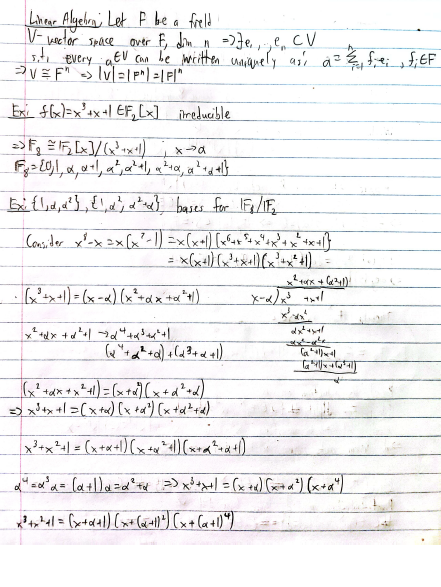 Linear Algebra; Let F be a field
V- vector space over F, dim n => ∃ e₁, ..., eₙ ⊂ V
s.t. every a∈V can be written uniquely as; a = Σⁿᵢ₌₁ fᵢeᵢ , fᵢ∈F
=> V ≅ Fⁿ => |V|=|Fⁿ|=|F|ⁿ
Ex: f(x)=x³+x+1 ∈ F₂[x] irreducible
=> F₈ ≅ F₂[x]/(x³+x+1) ; x→α
F₈={0,1, α, α+1, α², α²+1, α²+α, α²+α+1}
Ex: {1,α,α²}, {1, α², α²+α} bases for F₈/F₂
Consider x⁸-x = x(x⁷-1) = x(x+1)[x⁶+x⁵+x⁴+x³+x²+x+1]
= x(x+1)(x³+x+1)(x³+x²+1) =
x²+αx+(α²+1)
(x³+x+1)=(x-α)(x²+αx+α²+1) x-α) x³ +x+1
x³-αx²
x²+αx+α²+1 → α⁴+α³+α²+1 αx²+x+1
αx²-α²x
(α⁴+α²+α)+(α³+α+1) (α²+1)x+1
(α²+1)x+(α²+1)
(x²+αx+α²+1)=(x+α²)(x+α²+α)
=> x³+x+1 = (x+α)(x+α²)(x+α²+α)
x³+x²+1 = (x+α+1)(x+α²+1)(x+α²+α+1)
α⁴=α³α = (α+1)α=α²+α => x³+x+1 = (x+α)(x+α²)(x+α⁴)
x³+x²+1 = (x+α+1)(x+(α+1)²)(x+(α+1)⁴)